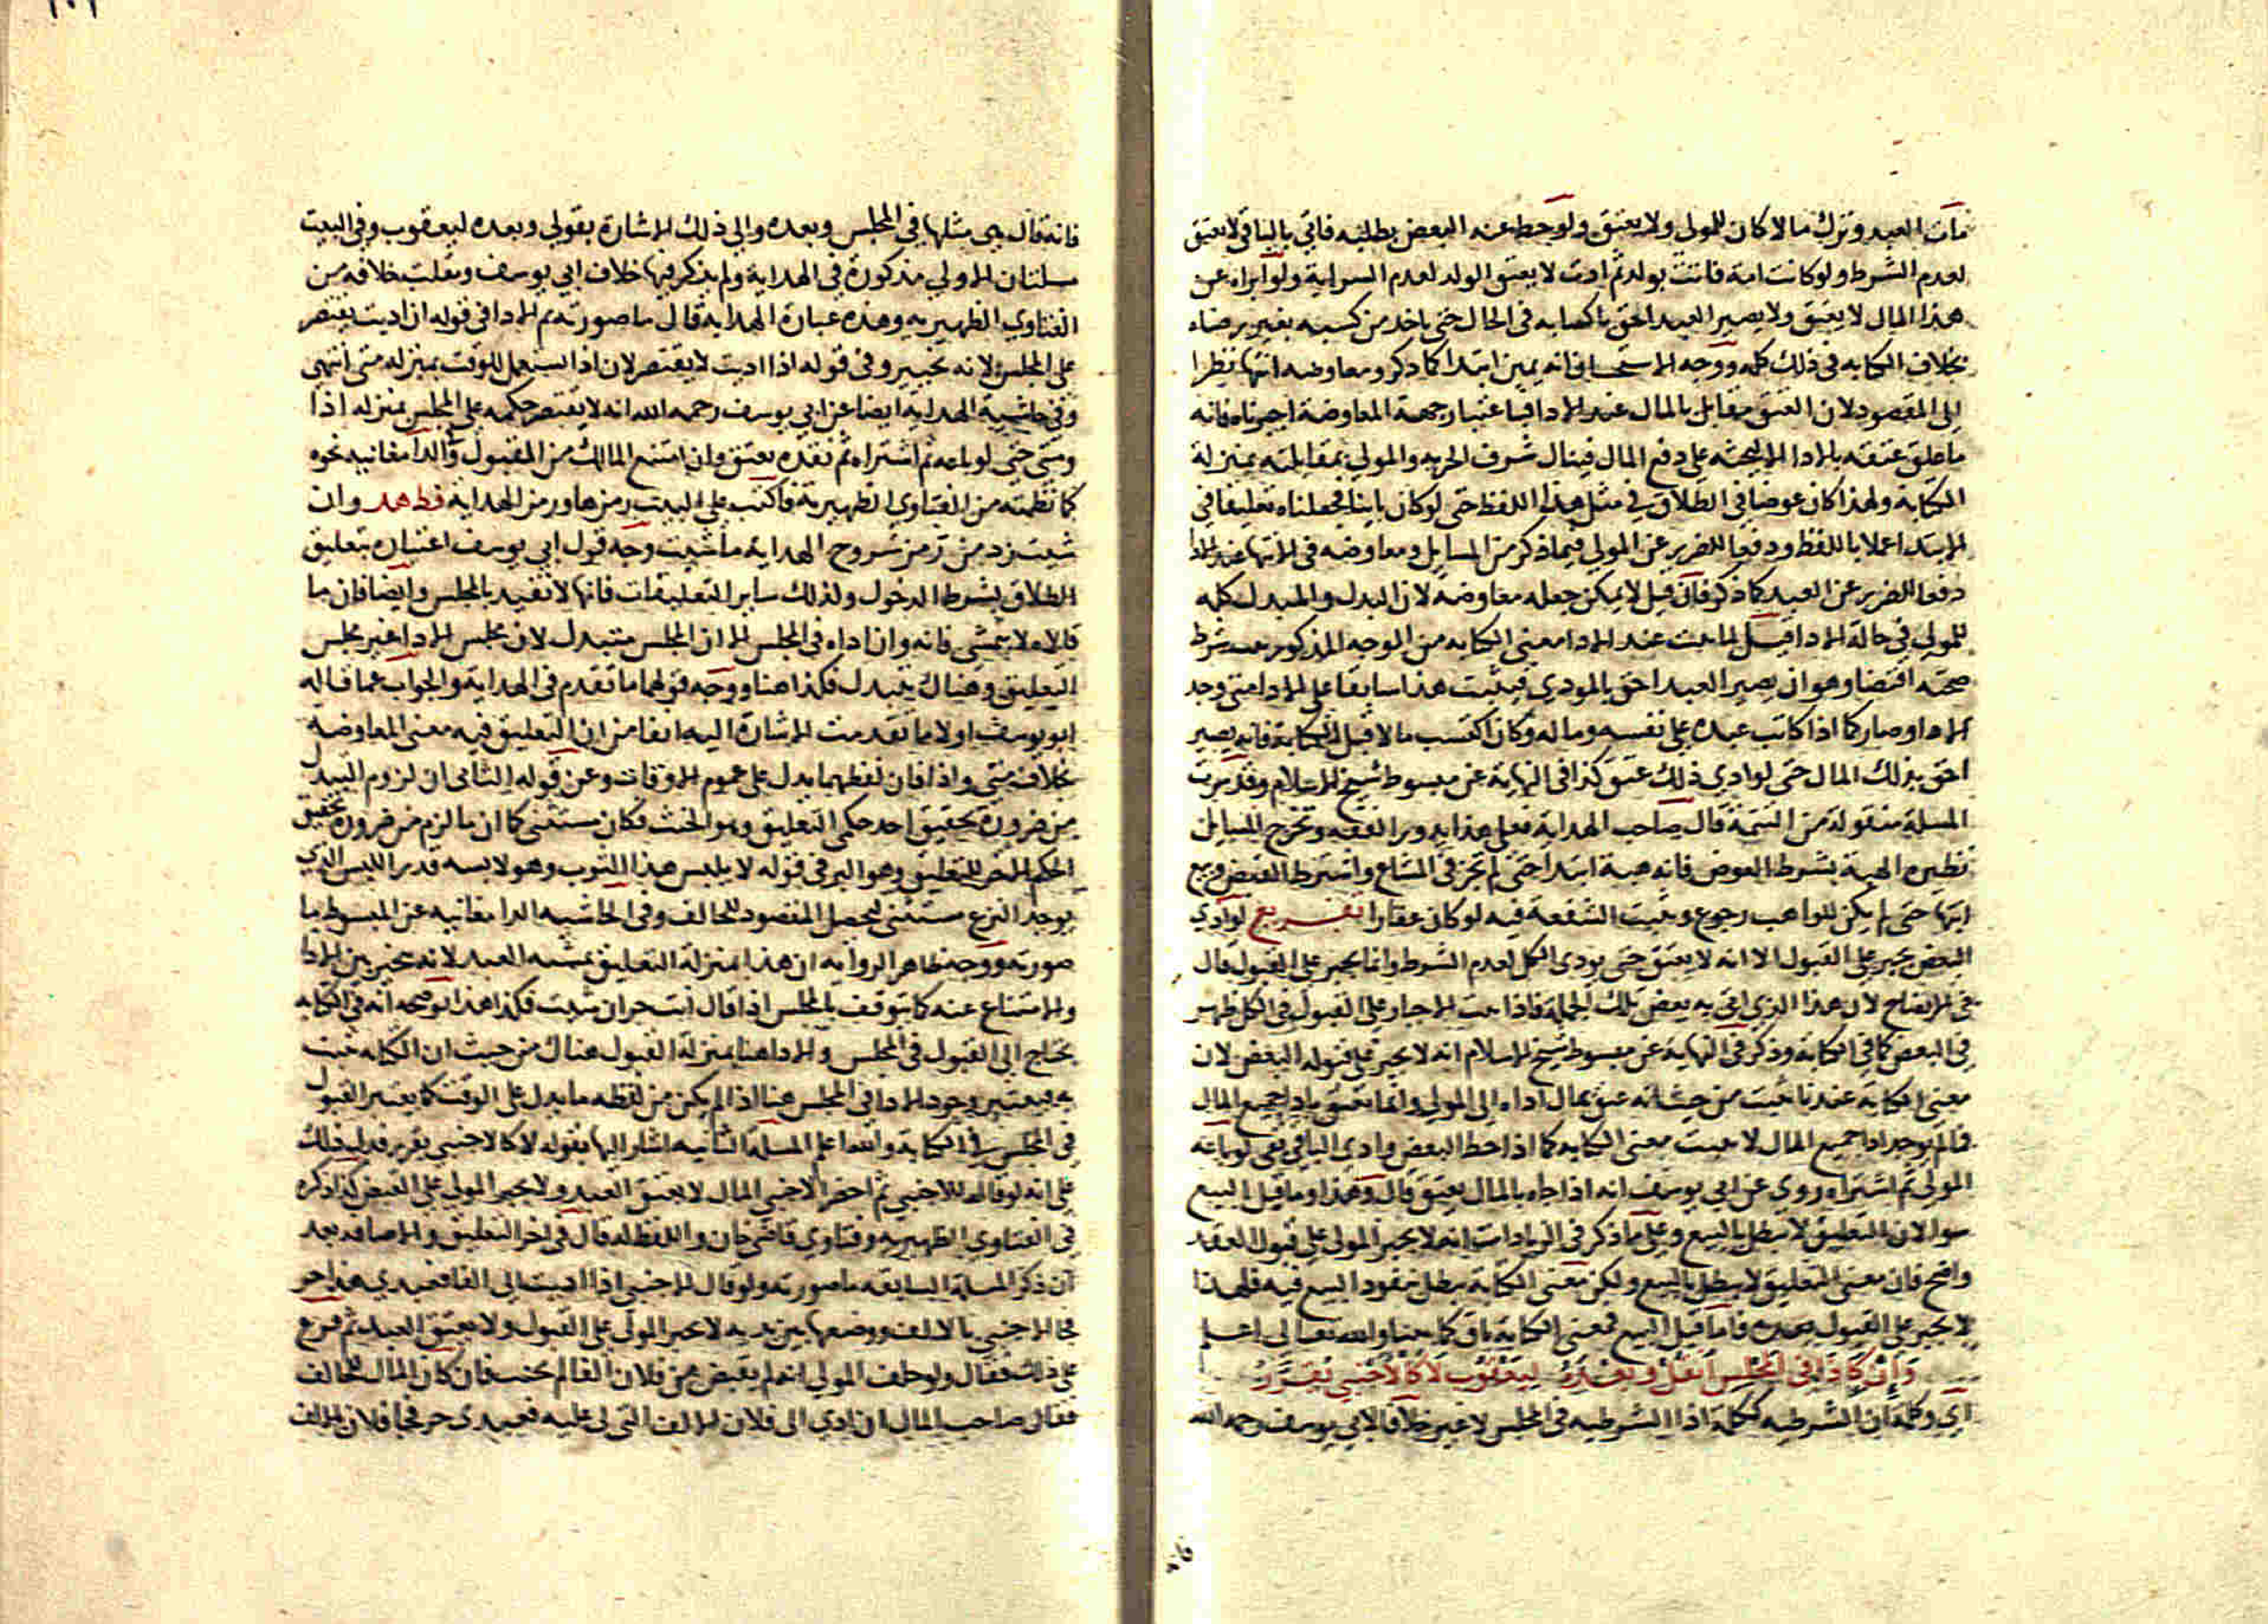 مات العبد وترك مالا كان للمولي ولا يعتق ولو حط عنه البعض بطلبه فاتي بالباقي لا يعتق
لعدم الشرط ولو كانت امة فاتت بولد ثم ادت لا يعتق الولد لعدم السراية ولو ابراه عن
هذا المال لا يعتق ولا يصير العبد احق باكسابه في الحال حتى ياخذ من كسبه بغير رضاه
بخلاف الكتابه في ذلك كله ووجه الاستحسان انه يمين ابتدا كما ذكر ومعاوضه انتها نظرا
الى المقصود لان العتق مقابل بالمال عند الادا فباعتبار جهة المعاوضة اجبرناه فانه
ما علق عتقه بالادا الا ليحثه علي دفع المال فينال شرف الحريه والمولي بمقابلته بمنزلة
الكتابة ولهذا كان عوضا في الطلاق في مثل هذا اللفظ حتى لو كان باينا فجعلناه تعليقا في
الابتدا عملا باللفظ ودفعا للضرر عن المولي فيما ذكر من المسايل ومعاوضه في الانتها عند الادا
دفعا للضرر عن العبد كما ذكر فان قيل لا يمكن جعله معاوضه لان البدل والمبدل كله
للمولي في حالة الادا قيل لما ثبت عند الادا معنى الكتابه من الوجه المذكور يثبت شرط
صحته اقتضا وهو ان يصير العبد احق بالمودي فيثبت هذا سابقا على الادا متى وجد
الادا وصار كما اذا كاتب عبده على نفسه وماله وكان اكتسب مالا قبل الكتابة فانه يصير
احق بذلك المال حتى لو ادي ذلك عتق كذا في النهاية عن مبسوط شيخ الاسلام وقد مرت
المسلة منقولة من التتمة قال صاحب الهداية فعلى هذا يدور الفقه وتخرج المسايل
نظيره الهبة بشرط العوض فانه هبة ابتدا حتى لم تجز في المشاع واشترط القبض وبيع
انتها حتى لم يكن للواهب رجوع وثبت الشفعة فيه لو كان عقارا تفريع لو ادي
البعض يجبر علي القبول الا انه لا يعتق حتى يودى الكل لعدم الشرط وانما يجبر على القبول قال
في الايضاح لان هذا الذي اتى به بعض تلك الجملة فاذا ثبت الاجبار على القبول في الكل ظهر
في البعض كما في الكتابة وذكر في النهاية عن مبسوط شيخ الاسلام انه لا يجبر على قبوله البعض لان
معنى الكتابة عندنا ثبت من حيث انه عتق بمال اداه الى المولي وانما يعتق بادا جميع المال
فما لم يوجد ادا جميع المال لا يثبت معنى الكتابه كما اذا حط البعض وادى الباقي بقى لو باعه
المولي ثم اشتراه روي عن ابي يوسف انه اذا جاه بالمال يعتق قال وهذا وما قبل البيع
سوا لان التعليق لا يبطل بالبيع وعلى ما ذكر في الزيادات انه لا يجبر المولى على قبوله العقد
واضح فان معنى التعليق لا يبطل بالبيع ولكن معنى الكتابة يبطل بنفوذ البيع فيه فلهذا
لا يجبر على القبول بعده فاما قبل البيع فمعنى الكتابة باق كما بينا والله تعالى اعلم
وان كاذا في المجلس انقل وبعده ليعقوب لا كالاجنبي تقرر
اي وكلمة ان الشرطيه ككلمة اذا الشرطيه في المجلس لا غير خلافا لابي يوسف رحمه الله
فانه
فانه قال هي مثلها في المجلس وبعده والى ذلك الاشارة بقولي وبعده ليعقوب وفى البيت
مسلتان الاولي مذكورة في الهداية ولم يذكر فيها خلاف ابي يوسف ونقلت خلافه من
الفتاوي الظهيريه وهذه عبارة الهدايه قال ما صورته ثم الادا في قوله ان اديت يقتصر
على المجلس لانه تخيير وفى قوله اذا اديت لا يقتصر لان اذا تستعمل للوقت بمنزله متى انتهى
وفى حاشية الهداية ايضا عن ابي يوسف رحمه الله انه لا يقتصر حكمه على المجلس بمنزله اذا
ومتى حتى لو باعه ثم اشتراه ثم نقده يعتق وان امتنع المالك من القبول والدامغانيه نحوه
كما نظمته من الفتاوي الظهيرية فاكتب على البيت رمزها ورمز الهداية قط هد وان
شيت زد من رمز شروح الهداية ما شيت وجه قول ابي يوسف اعتباره بتعليق
الطلاق بشرط الدخول وكذلك ساير التعليقات فانها لا تتقيد بالمجلس وايضا فان ما
قالاه لا يتمشى فانه وان اداه في المجلس الا ان المجلس متبدل لان مجلس الادا غير مجلس
التعليق وهناك يتبدل فكذا هنا ووجه قولهما ما تقدم في الهداية والجواب عما قاله
ابو يوسف اولا ما تقدمت الاشارة اليه انفا من ان التعليق فيه معنى المعاوضة
بخلاف متى واذا فان لفظهما يدل على عموم الاوقات وعن قوله الثانى ان لزوم التبدل
من ضرورة تحقيق احد حكمى التعليق وهو الحنث فكان مستثنى كما ان ما لزم من ضرورة تحقيق
الحكم الاخر للتعليق وهو البر في قوله لا يلبس هذا الثوب وهو لابسه قدر اللبس الذي
يوجد النزع مستثنى ليحصل المقصود للحالف وفى الحاشيه الدامغانيه عن المبسوط ما
صورته ووجه ظاهر الروايه ان هذا بمنزلة التعليق بمشيه العبد لانه يتخير بين الادا
والامتناع عنه كما يتوقف بالمجلس اذا قال انت حر ان شيت فكذا هذا توضيحه انه في الكتابه
يحتاج الى القبول في المجلس والادا هنا بمنزلة القبول هناك من حيث ان الكتابه تثبت
به فيعتبر وجود الادا في المجلس هنا اذا لم يكن من لفظه ما يدل على الوقت كما يعتبر القبول
في المجلس في الكتابة والله اعلم المسلة الثانيه اشار اليها بقوله لا كالاجنبي تقرر فدل ذلك
على انه لو قاله للاجنبي ثم احضر الاجنبي المال لا يعتق العبد ولا يجبر المولي على القبض كذا ذكره
في الفتاوي الظهيريه وفتاوي قاضى خان واللفظ له قال في اخر التعليق والاضافه بعد
ان ذكر المسلة السابقه ما صورته ولو قال لاجنبى اذا اديت الى الفا فعبدي هذا حر
فجا الاجنبى بالالف ووضعها بين يديه لا يجبر المولى على القبول ولا يعتق العبد ثم فرع
على ذلك فقال ولو حلف المولي انه لم يقبض من فلان الفا لم يحنث فان كان المال للحالف
فقال صاحب المال ان ادي الى فلان الالف التى لى عليه فعبدى حر فجا فلان بالالف